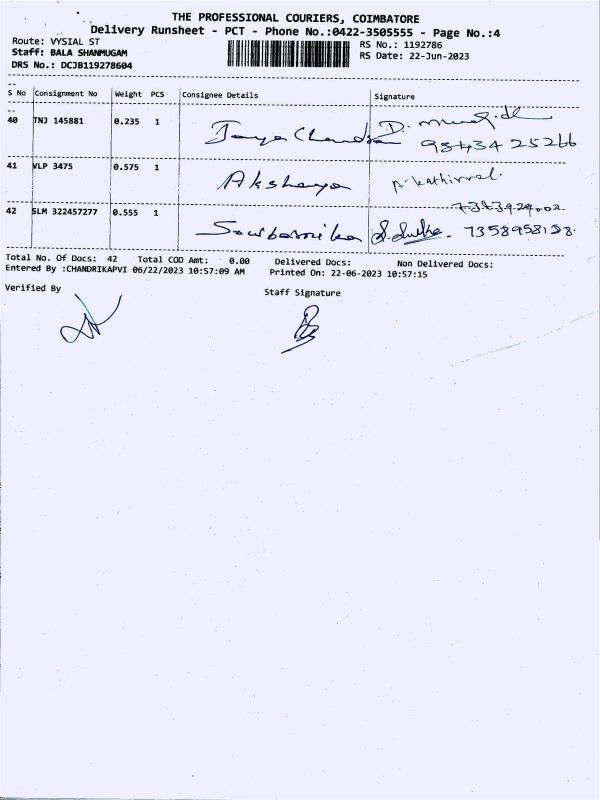 THE PROFESSIONAL COURIERS, COIMBATORE
Delivery Runsheet - PCT - Phone No.:0422-3505555 - Page No.:4
Route: VYSIAL ST RS No.: 1192786
Staff: BALA SHANMUGAM RS Date: 22-Jun-2023
DRS No.: DCJB119278604
S No Consignment No Weight PCS Consignee Details Signature
40 TNJ 145881 0.235 1 Jaya Chandran D.
98434 25266
41 VLP 3475 0.575 1 Akshaya A. Kathirvel.
42 SLM 322457277 0.555 1 Sowbarnika 7358958128.
Total No. Of Docs: 42 Total COD Amt: 0.00 Delivered Docs: Non Delivered Docs:
Entered By :CHANDRIKAPVI 06/22/2023 10:57:09 AM Printed On: 22-06-2023 10:57:15
Verified By Staff Signature